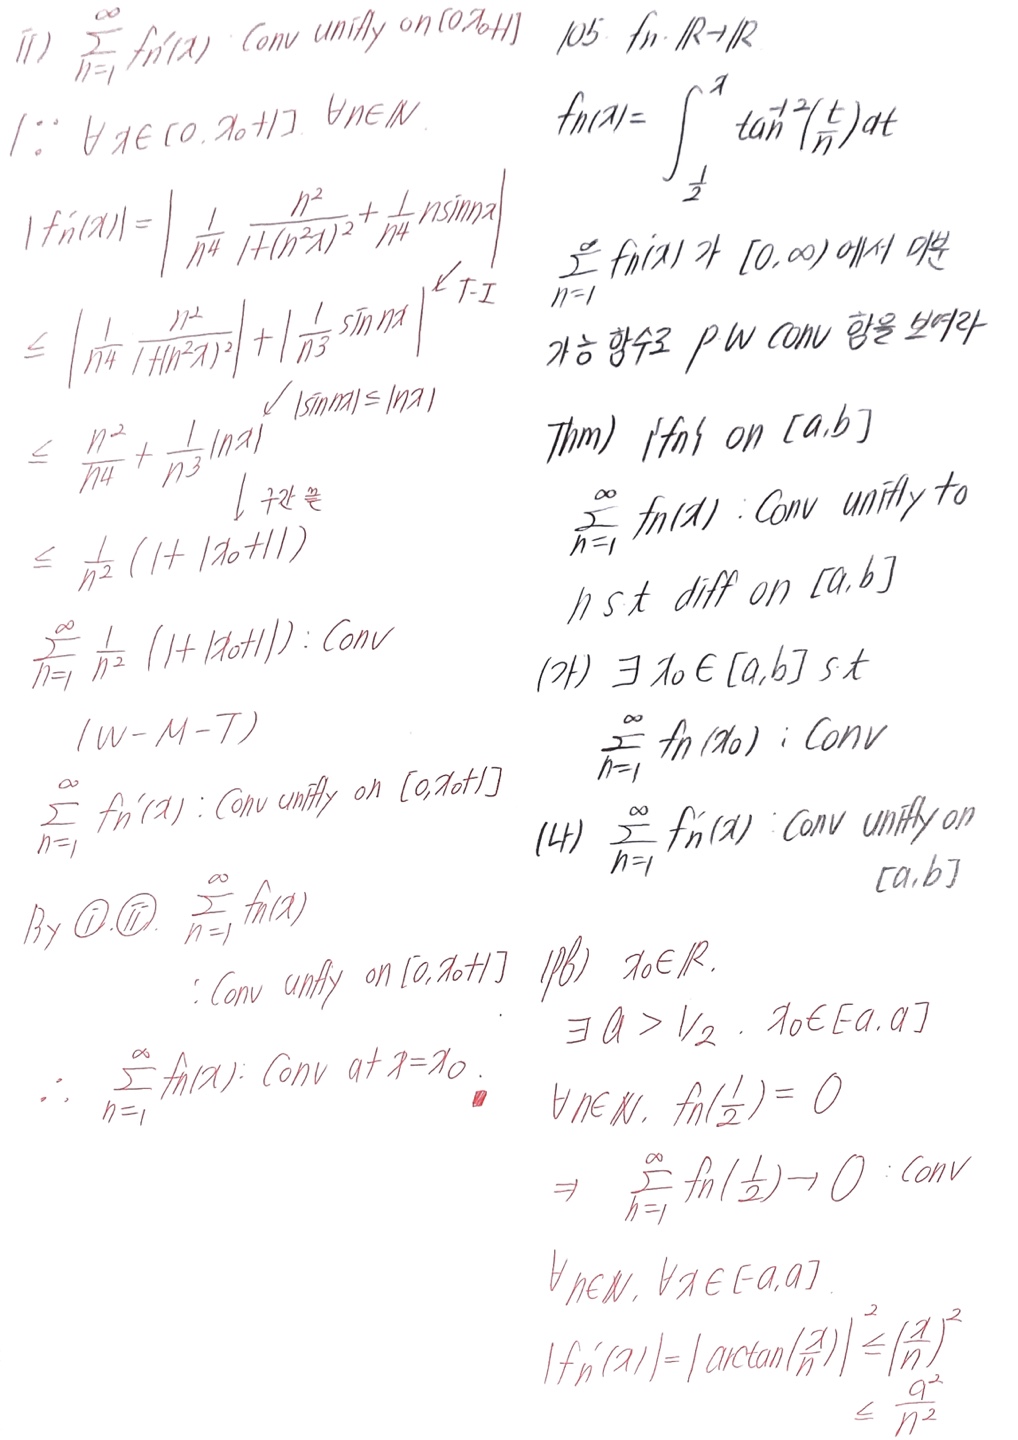 ii) ∑_{n=1}^{∞} fn'(x) : Conv unifly on [0.x₀+1]
(∵ ∀x∈[0.x₀+1]. ∀n∈ℕ.
|fn'(x)| = | 1/n4 n²/(1+(n²x)²) + 1/n4 nsinnx |
≤ | 1/n4 n²/(1+(n²x)²) | + | 1/n3 sin nx | ↙ T-I
≤ n²/n4 + 1/n3 |nx| ↙ |sinnx| ≤ |nx|
↓ 구간 끝
≤ 1/n² (1+|x₀+1|)
∑_{n=1}^{∞} 1/n² (1+|x₀+1|) : Conv
(W-M-T)
∑_{n=1}^{∞} fn'(x) : Conv unifly on [0,x₀+1]
By ⓘ.ⓘⓘ. ∑_{n=1}^{∞} fn(x)
: Conv unfly on [0,x₀+1]
∴ ∑_{n=1}^{∞} fn(x) : Conv at x=x₀.
105. fn: ℝ→ℝ
fn(x) = ∫_{1/2}^{x} tan⁻¹²(t/n)dt
∑_{n=1}^{∞} fn(x) 가 [0,∞) 에서 미분
가능 함수로 p.w conv 함을 보여라
Thm) {fn} on [a,b]
∑_{n=1}^{∞} fn(x) : Conv unifly to
h s.t diff on [a,b]
(가) ∃x₀∈[a,b] s.t
∑_{n=1}^{∞} fn(x₀) : Conv
(나) ∑_{n=1}^{∞} fn'(x) : Conv unifly on
[a,b]
(pf) x₀∈ℝ.
∃a > 1/2 . x₀∈[-a.a]
∀n∈ℕ, fn(1/2) = 0
⇒ ∑_{n=1}^{∞} fn(1/2) → 0 : conv
∀n∈ℕ, ∀x∈[-a,a]
|fn'(x)| = |arctan(x/n)|² ≤ (x/n)²
≤ a²/n²